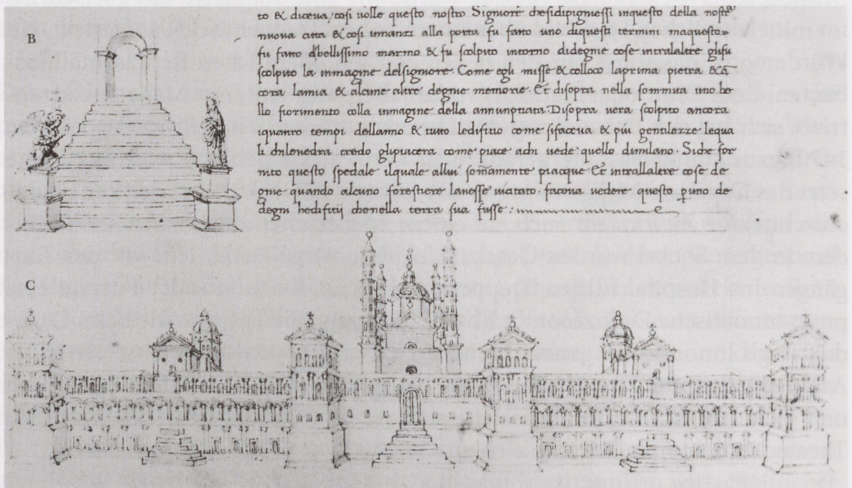 to & diceua, cosi uolle questo nostro Signore chesidipignessi inquesto della nostra
B
nuoua citta & cosi innanzi alla porta fu fatto uno diquesti termini maquesto
fu fatto dbellissimo marmo & fu scolpito intorno didegne cose intralaltre glifu
scolpito la inmagine delsignore Come egli misse & colloco laprima pietra &
cora lamia & alcune altre degne memorie Et disopra nella sommita uno be
llo fiorimento colla inmagine della annuptiata Disopra uera scolpito anchora
quatro tempi dellanno & tutto ledifitio come sifaceua & piu gentilezze lequa
li chileuedra credo glipiacera come piace achi uede quello dimilano Siche for
nito questo spedale ilquale allui somamente piacque Et intrallaltre cose de
gne quando alcuno forestiere lauesse uicitato faceua uedere questo p uno de
degni hedifitij chenella terra sua fusse
C